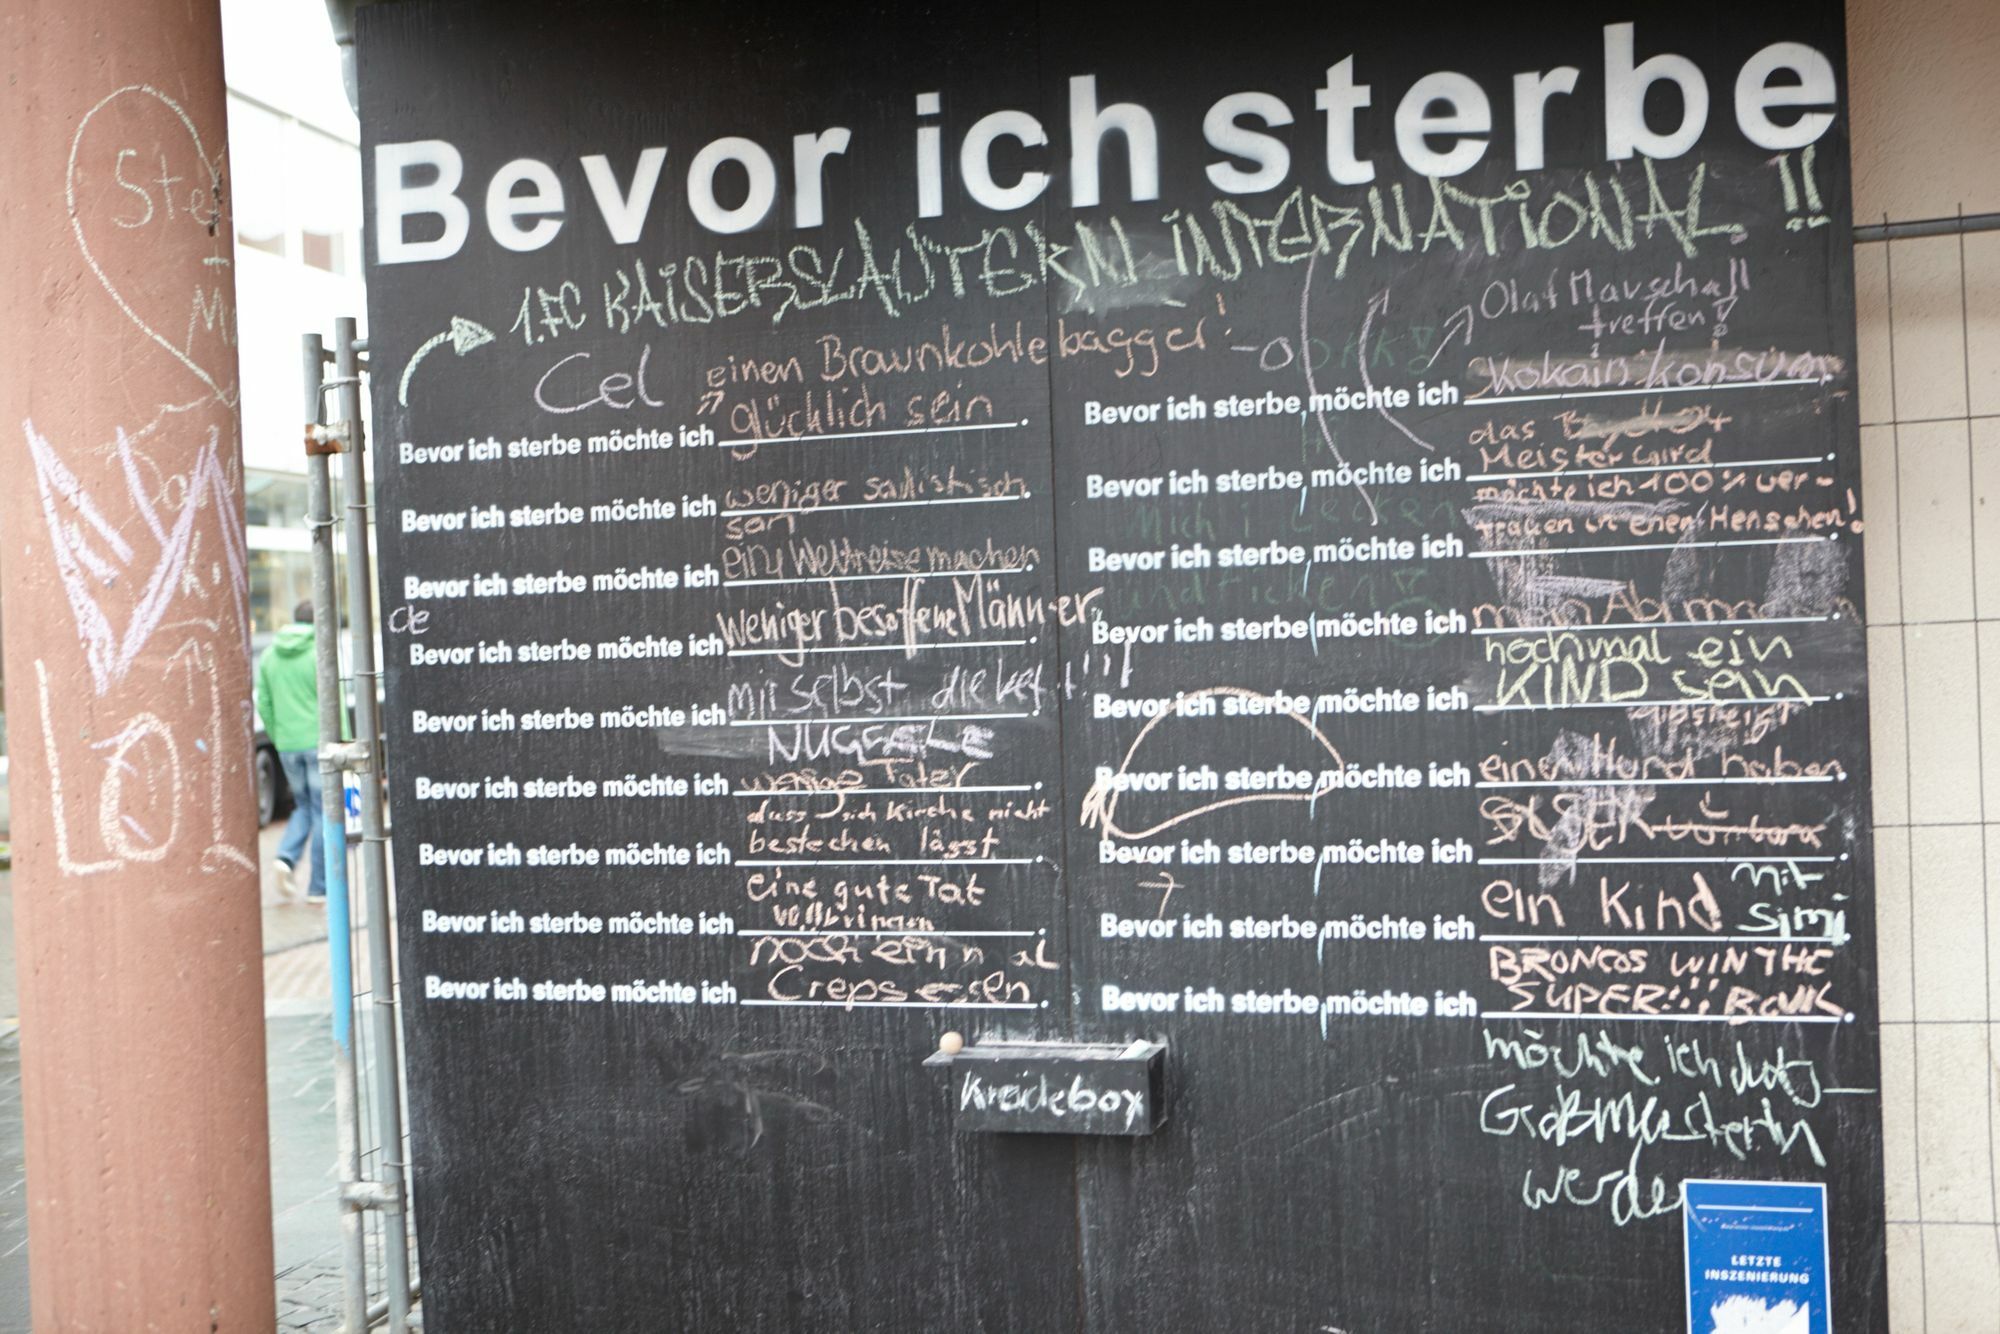 Bevor ich sterbe
1.FC KAISERSLAUTERN INTERNATIONAL !!
Cel
einen Braunkohlebagger!
Bevor ich sterbe möchte ich glücklich sein.
Bevor ich sterbe möchte ich weniger sadistisch
sein
Bevor ich sterbe möchte ich eine Weltreise machen.
ce
Bevor ich sterbe möchte ich Weniger besoffene Männer.
Bevor ich sterbe möchte ich mir selbst die
NUGGELE
Bevor ich sterbe möchte ich wenige Täter.
dass sich Kirche nicht
Bevor ich sterbe möchte ich bestechen lässt.
eine gute Tat
Bevor ich sterbe möchte ich vollbringen.
noch einmal
Bevor ich sterbe möchte ich Creps essen.
Olaf Marschall
treffen!
Bevor ich sterbe, möchte ich Kokain konsum
das
Bevor ich sterbe, möchte ich Meister wird.
möchte ich 100% ver-
trauen in einen Menschen!
Bevor ich sterbe, möchte ich
Mich
lecken
und ficken
Bevor ich sterbe, möchte ich mein Abi machen.
nochmal ein
Bevor ich sterbe, möchte ich KIND sein.
absteigt
Bevor ich sterbe, möchte ich einen Hund haben.
Bevor ich sterbe, möchte ich
Bevor ich sterbe, möchte ich ein Kind mit
Simi.
BRONCOS WIN THE
Bevor ich sterbe, möchte ich SUPER!!! BOWL.
möchte ich
Großmeisterin
werde
Kreidebox
LETZTE
INSZENIERUNG
Ste
+
M
LOL